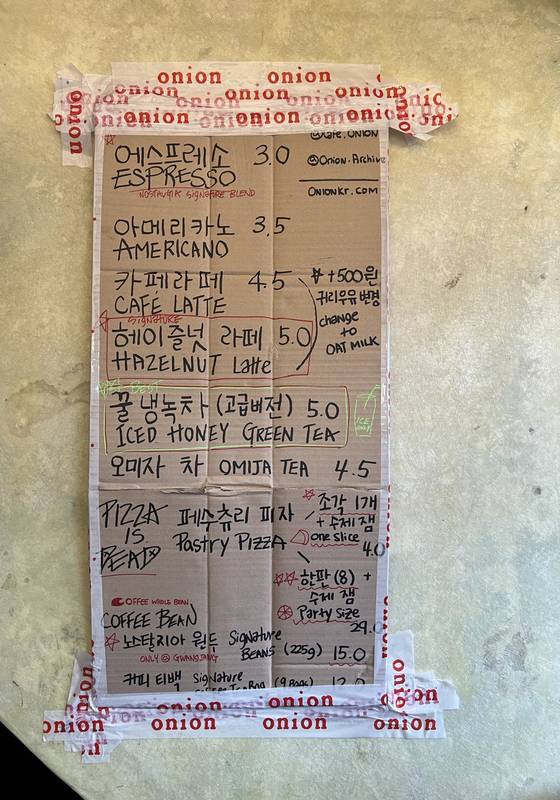 onion onion
onion onion onion onion
onion onion onion onion onion
@Cafe.Onion
@Onion.Archive
OnionKr.com
에스프레소 3.0
ESPRESSO
NOSTALGIA SIGNATURE BLEND
아메리카노 3.5
AMERICANO
카페라떼 4.5
CAFE LATTE
+500원
귀리우유 변경
change
to
OAT MILK
SIGNATURE
헤이즐넛 라떼 5.0
HAZELNUT Latte
BEST
꿀냉녹차 (고급버전) 5.0
ICED HONEY GREEN TEA
ICE
ONLY
오미자 차 OMIJA TEA 4.5
PIZZA
IS
BEAD
페수츄리 피자
Pastry Pizza
조각 1개
+ 수제 잼
one slice
4.0
한판 (8) +
수제 잼
Party Size
29.0
COFFEE WHOLE BEAN
COFFEE BEAN
노스탈지아 원두 Signature
BEANS (225g) 15.0
ONLY @ GWANGJANG
커피 티백 Signature
(9 Bags)
onion onion onion
onion onion onion onion